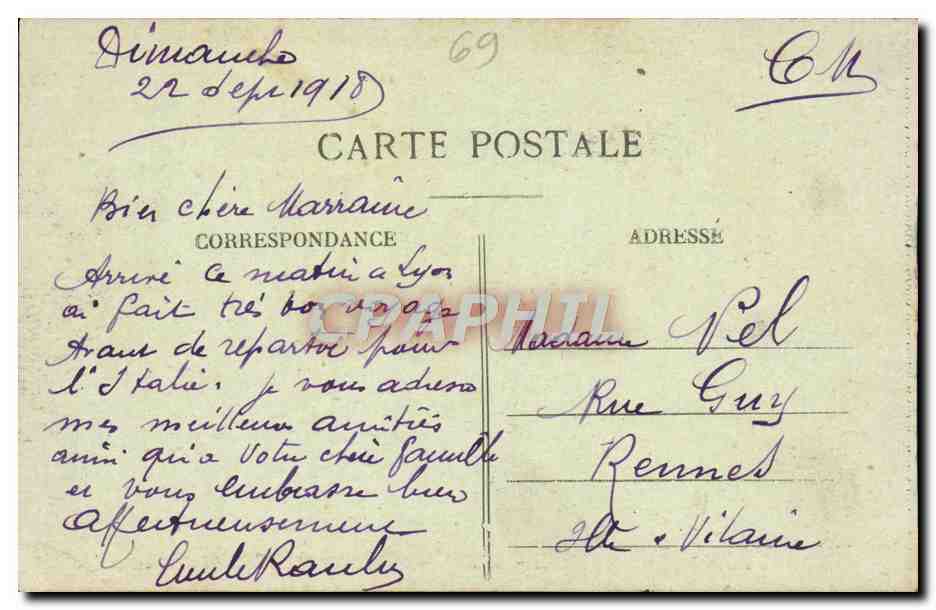 Dimanche
22 Sept 1918
69
CM
CARTE POSTALE
Bien chère Marraine
CORRESPONDANCE
Arrivé ce matin a Lyon
ai fait très bo voyage
Avant de repartir pour
l'Italie. je vous adresse
mes meilleurs amitiés
ainsi qu'a votre chère famille
et vous embrasse bien
affectueusement
Emile
ADRESSE
Madame Pel
Rue Guy
Rennes
Ille & Vilaine
CPAPHIL